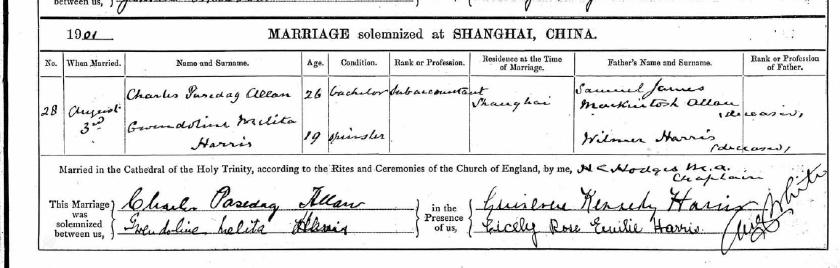 between us,
1901 MARRIAGE solemnized at SHANGHAI, CHINA.
No. When Married. Name and Surname. Age. Condition. Rank or Profession. Residence at the Time of Marriage. Father's Name and Surname. Rank or Profession of Father.
28 August 3rd Charles Pasedag Allan 26 bachelor Subaccountant Shanghai Samuel James Mackintosh Allan (deceased)
Gwendoline Melita Harris 19 spinster Wilmer Harris (deceased)
Married in the Cathedral of the Holy Trinity, according to the Rites and Ceremonies of the Church of England, by me, H C Hodges M.A. Chaplain
This Marriage was solemnized between us, Charles Pasedag Allan in the Presence of us, Kennedy Harris
Gwendoline Melita Harris Cicely Rose Emilie Harris
White